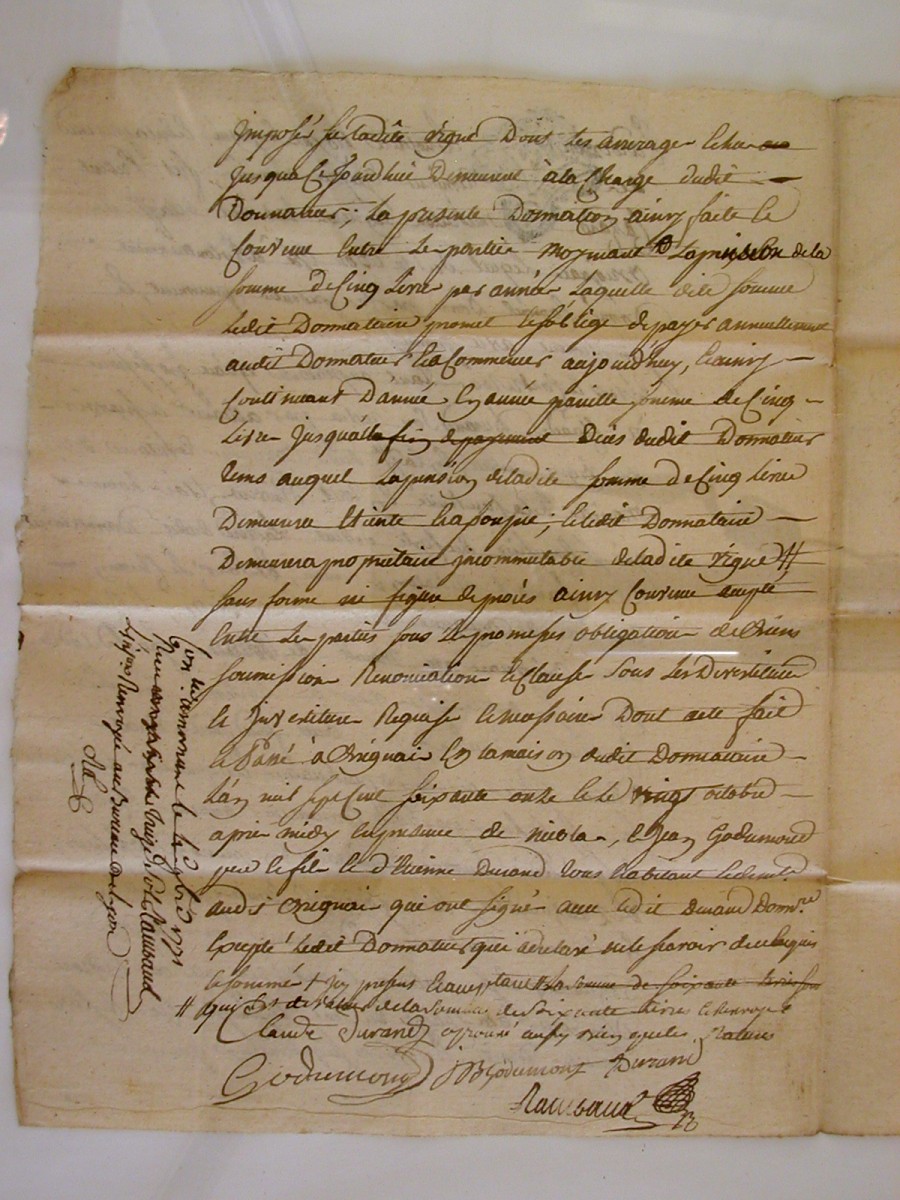 imposés sur ladite vigne dont les arrerages echus
jusqua ce jourdhui demeurent à la charge dudit
Donnateur; la presente Donnation ainsy faite et
Convenue entre les parties moyenant la pension de la
somme de Cinq livres par année laquelle dite somme
ledit Donnataire promet et s'oblige de payer annuellement
audit Donnateur et a Commencer aujourdhuy, et ainsy
Continuant D'année en année pareille somme de Cinq
livres jusqu'à la fin de payement deces dudit Donnateur
tems auquel la pension de ladite somme de Cinq livres
Demeurera Eteinte et assoupie; et ledit Donnataire
Demeurera proprietaire incommutable de ladite vigne //
sans forme ni figure de procés ainsy Convenu accepté
Entre les parties sous les promesses obligation de biens
soumission Renonciation et Clauses sous les Devestiture
et Investiture Requise et necessaire Dont acte fait
et Passé à Orignai En la maison dudit Donnataire
L'an mil sept Cent soixante onze et le vingt octobre
après midy en presence de Nicolas, et Jean Godumond
pere et fils et d'Etienne Durand tous habitant
audit Orignai qui ont signé avec ledit Durand Donnre
Excepté ledit Donnateur qui a declaré ne le savoir de ce Enquis
et sommé + icy present et acceptant // la somme de soixante livres
// aquis de valeur de la somme de soixante livres le renvoy
Claude Durand approuvé aussy bien que les Ratures
Godumond JB Godumont Durand
Raimbaud
Con. à Lamornant le 1771
Reçu treize s. Raimbaud
renvoyé au Bureau de Lyon